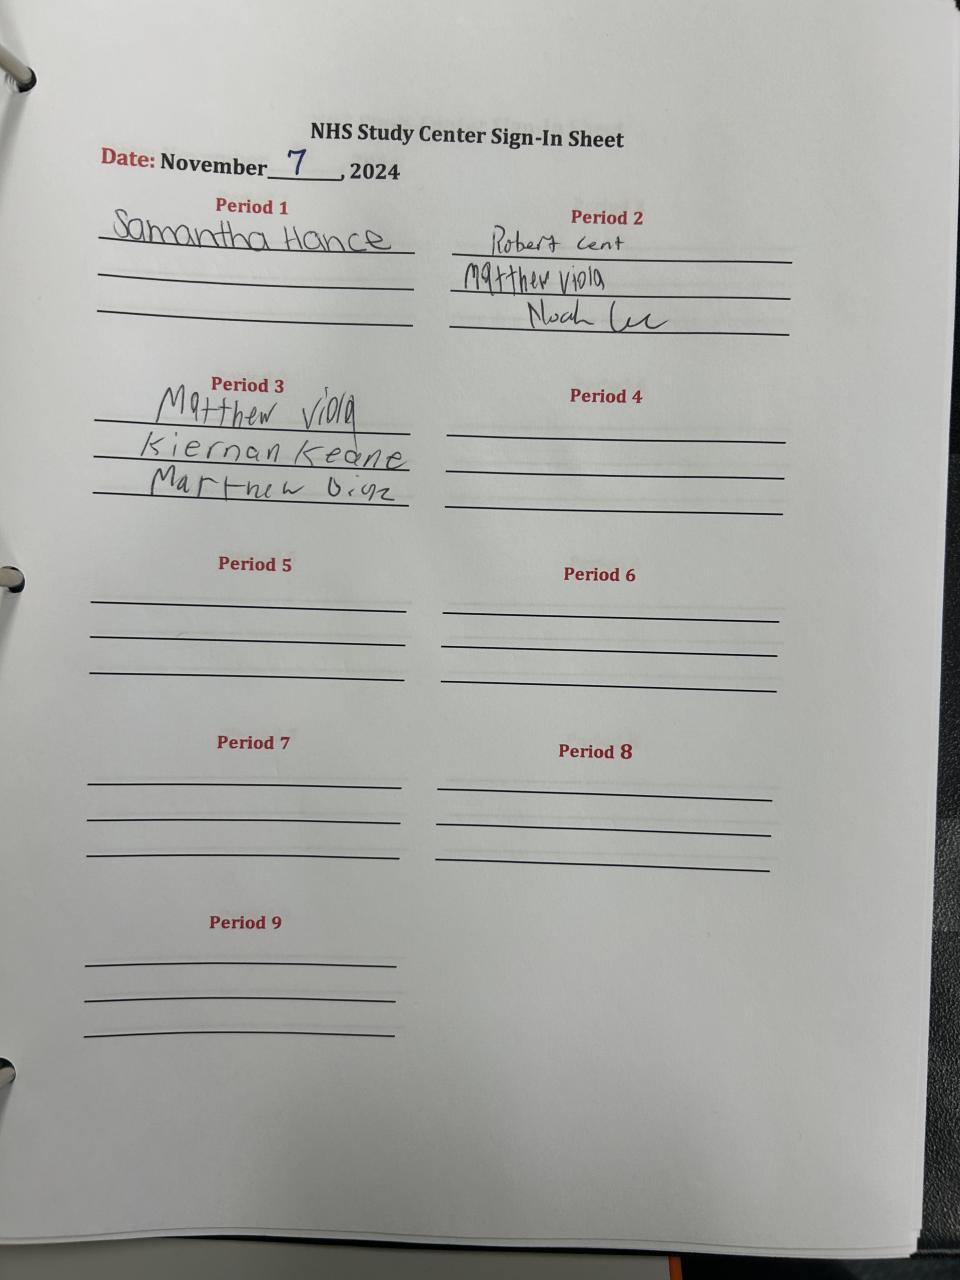 NHS Study Center Sign-In Sheet
Date: November 7, 2024
Period 1
Samantha Hance
Period 2
Robert Cent
Matthew Viola
Noah
Period 3
Matthew Viola
Kiernan Keane
Matthew
Period 4
Period 5
Period 6
Period 7
Period 8
Period 9